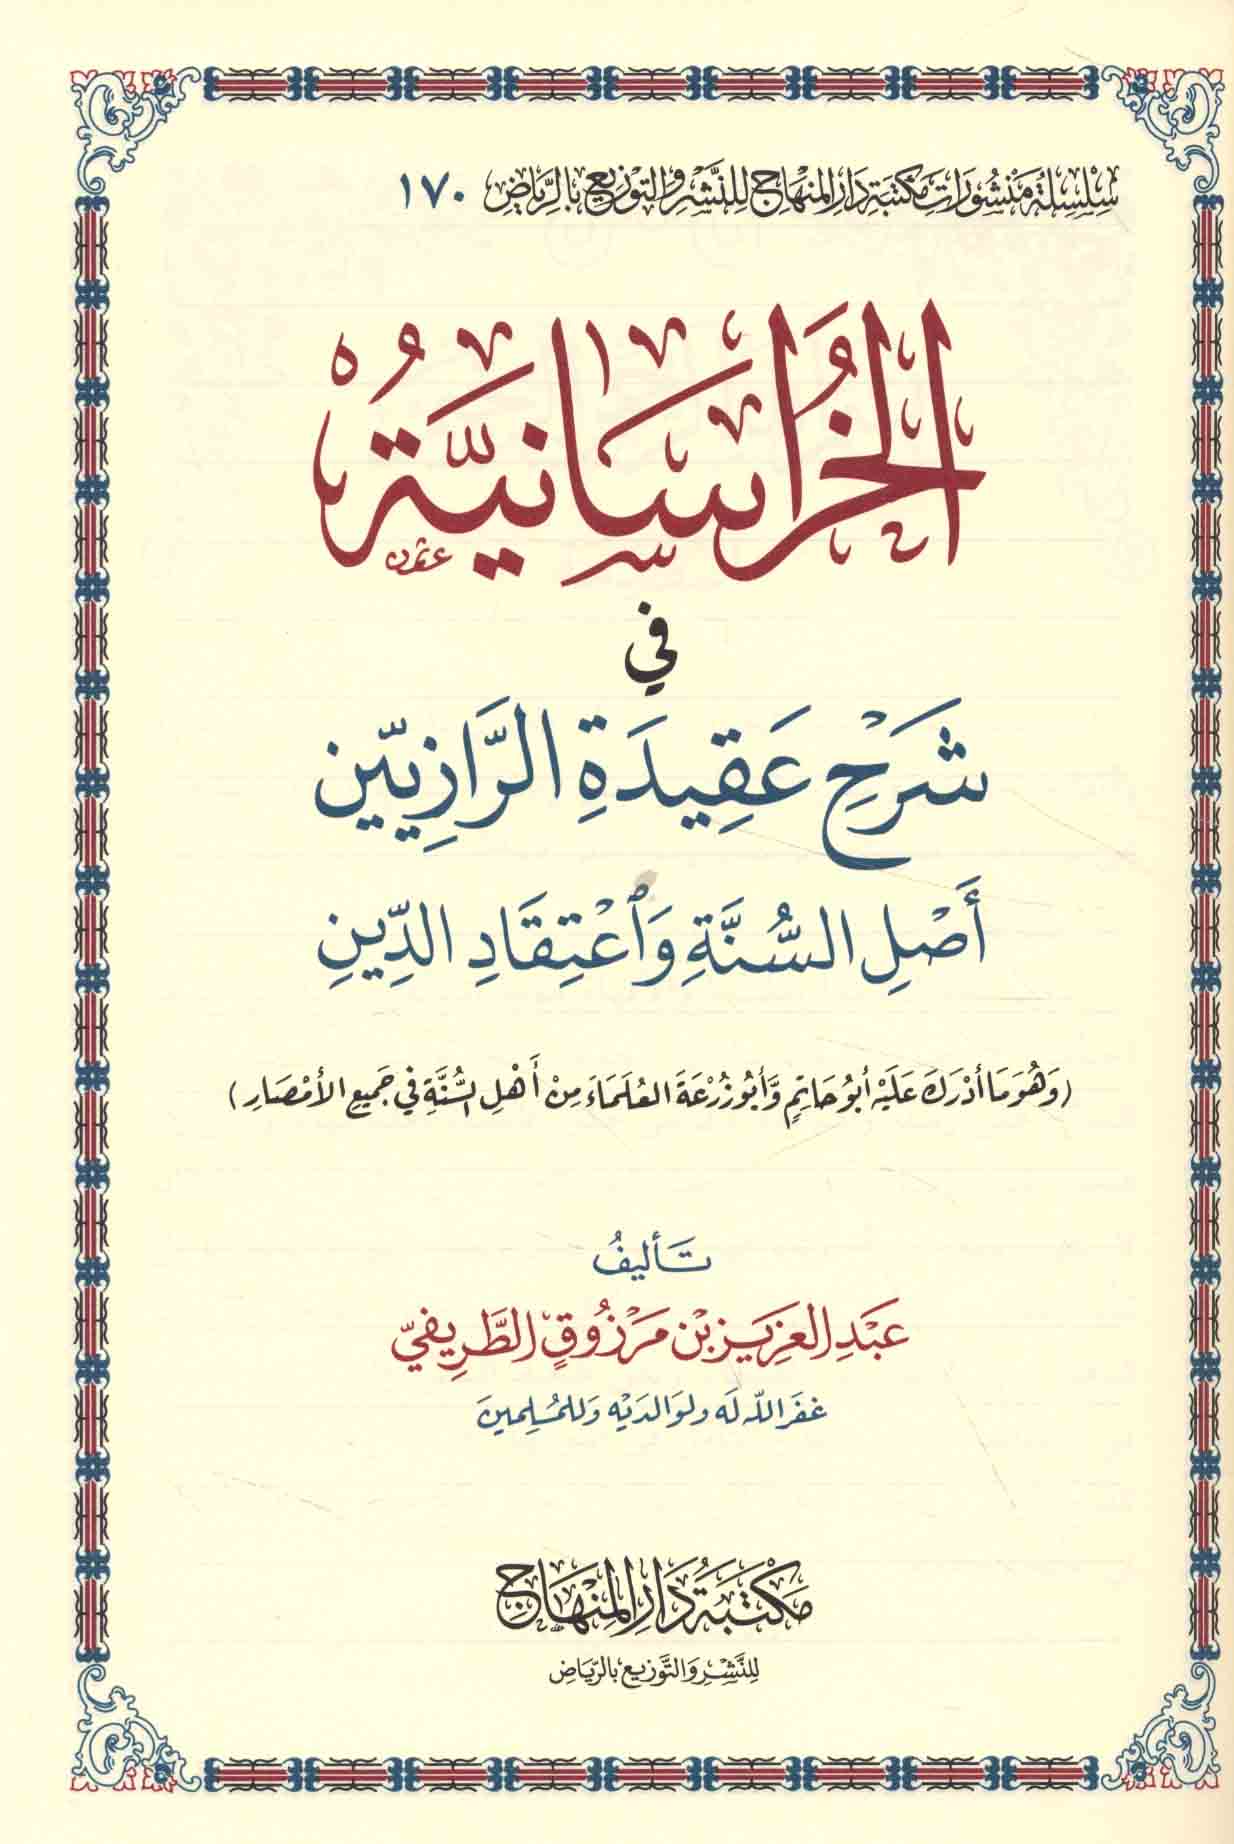 سِلْسِلَةُ مَنْشُورَاتِ مَكْتَبَةِ دَارِ المِنْهَاجِ لِلنَّشْرِ وَالتَّوْزِيعِ بِالرِّيَاضِ ١٧٠
الخُرَاسَانِيَّةُ
في
شَرْحِ عَقِيدَةِ الرَّازِيَّيْنِ
أَصْلِ السُّنَّةِ وَٱعْتِقَادِ الدِّينِ
(وَهُوَ مَا أَدْرَكَ عَلَيْهِ أَبُو حَاتِمٍ وَأَبُو زُرْعَةَ العُلَمَاءَ مِنْ أَهْلِ السُّنَّةِ فِي جَمِيعِ الأَمْصَارِ)
تَأليفُ
عَبْدِ العَزِيزِ بْنِ مَرْزُوقٍ الطَّرِيفيِّ
غفَرَ اللّٰه لَهُ ولِوَالدَيْهِ وَلِلْمُسْلِمِينَ
مَكْتَبَةُ دَارِ المِنْهَاجِ
لِلنَّشْرِ وَالتَّوْزِيعِ بِالرِّيَاضِ